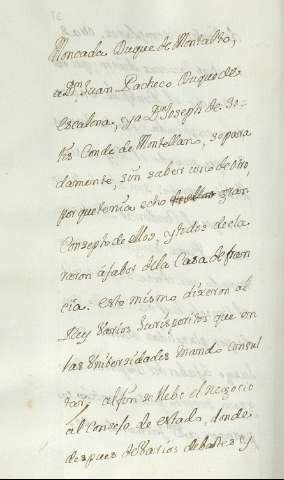 Moncada Duque de Montalto,
a Dn. Juan Pacheco Duque de
escalona, y a Dn. Joseph de So-
lis Conde de Montellano, separa
damente, sin saber uno de otro,
porque tenia echo gran
Consepto de ellos, y todos decla
raron á fabor de la Casa de fran
cia. esto mismo dixeron al
Rey varios Jurisperitos que en
las Universidades mando consul
tar; al fin se llebo el negocio
al Consejo de estado, donde
despues de barios debates y